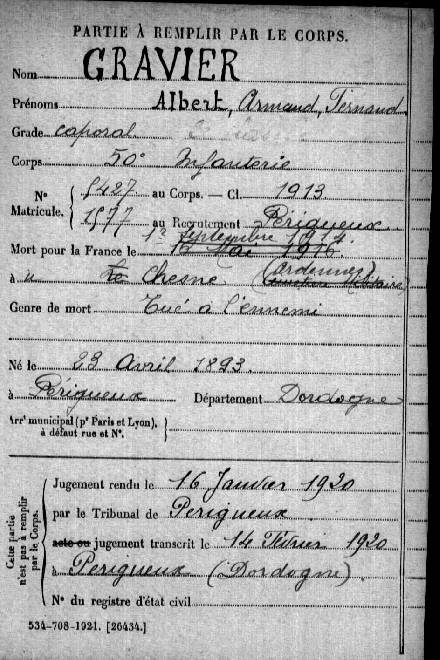 PARTIE À REMPLIR PAR LE CORPS.
Nom GRAVIER
Prénoms Albert, Armand, Fernand
Grade caporal
Corps 50e Infanterie
N° Matricule. 5427 au Corps. — Cl. 1913
1577 au Recrutement Périgueux
1er septembre 1914
Mort pour la France le 1916
à Le Chesne (Ardennes)
Genre de mort Tué à l'ennemi
Né le 23 Avril 1893.
à Périgueux Département Dordogne
Arrt municipal (pr Paris et Lyon), à défaut rue et N°.
Cette partie n'est pas à remplir par le Corps.
Jugement rendu le 16 Janvier 1920
par le Tribunal de Périgueux
acte ou jugement transcrit le 14 Février 1920
à Périgueux (Dordogne)
N° du registre d'état civil
534-708-1921. [26434.]